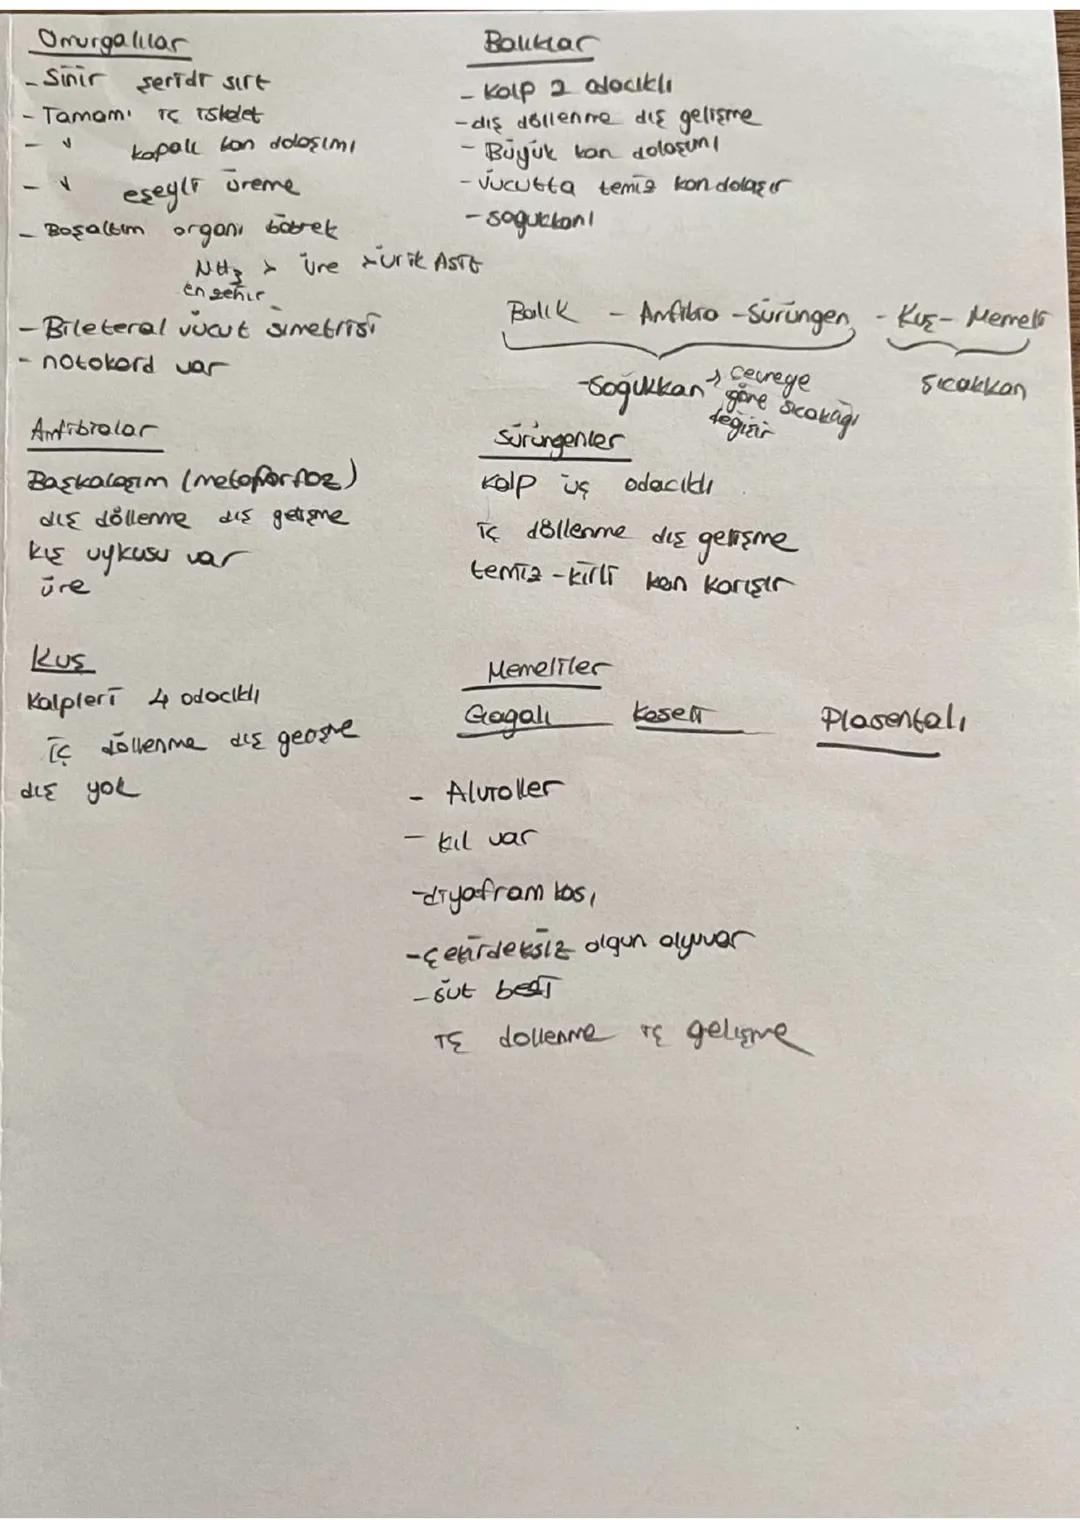 Omurgalılar
- Sinir şeridi sırt
- Tamamı iç iskelet
- " kapalı kan dolaşımı
- " eşeyli üreme
- Boşaltım organı böbrek
NH3 > üre > ürik Asit
en zehir
- Bileteral vücut simetrisi
- notokord var
Balıklar
- Kalp 2 odacıklı
- dış döllenme dış gelişme
- Büyük kan dolaşımı
- vücutta temiz kan dolaşır
- soğukkanlı
Balık - Anfibi - Sürüngen - Kuş - Memeli
- Soğukkan → çevreye göre sıcaklığı değişir
Sıcakkan
Anfibiolar
Başkalaşım (metoforfoz)
dış döllenme dış gelişme
kış uykusu var
üre
Sürüngenler
Kalp üç odacıklı
iç döllenme dış gelişme
temiz - kirli kan karışır
Kuş
Kalpleri 4 odacıklı
iç döllenme dış gelişme
diş yok
Memeliler
Gagalı Keseli Plasentalı
- Alvoller
- kıl var
- diyafram kası
- çekirdeksiz olgun alyuvar
- süt bezi
iç döllenme iç gelişme